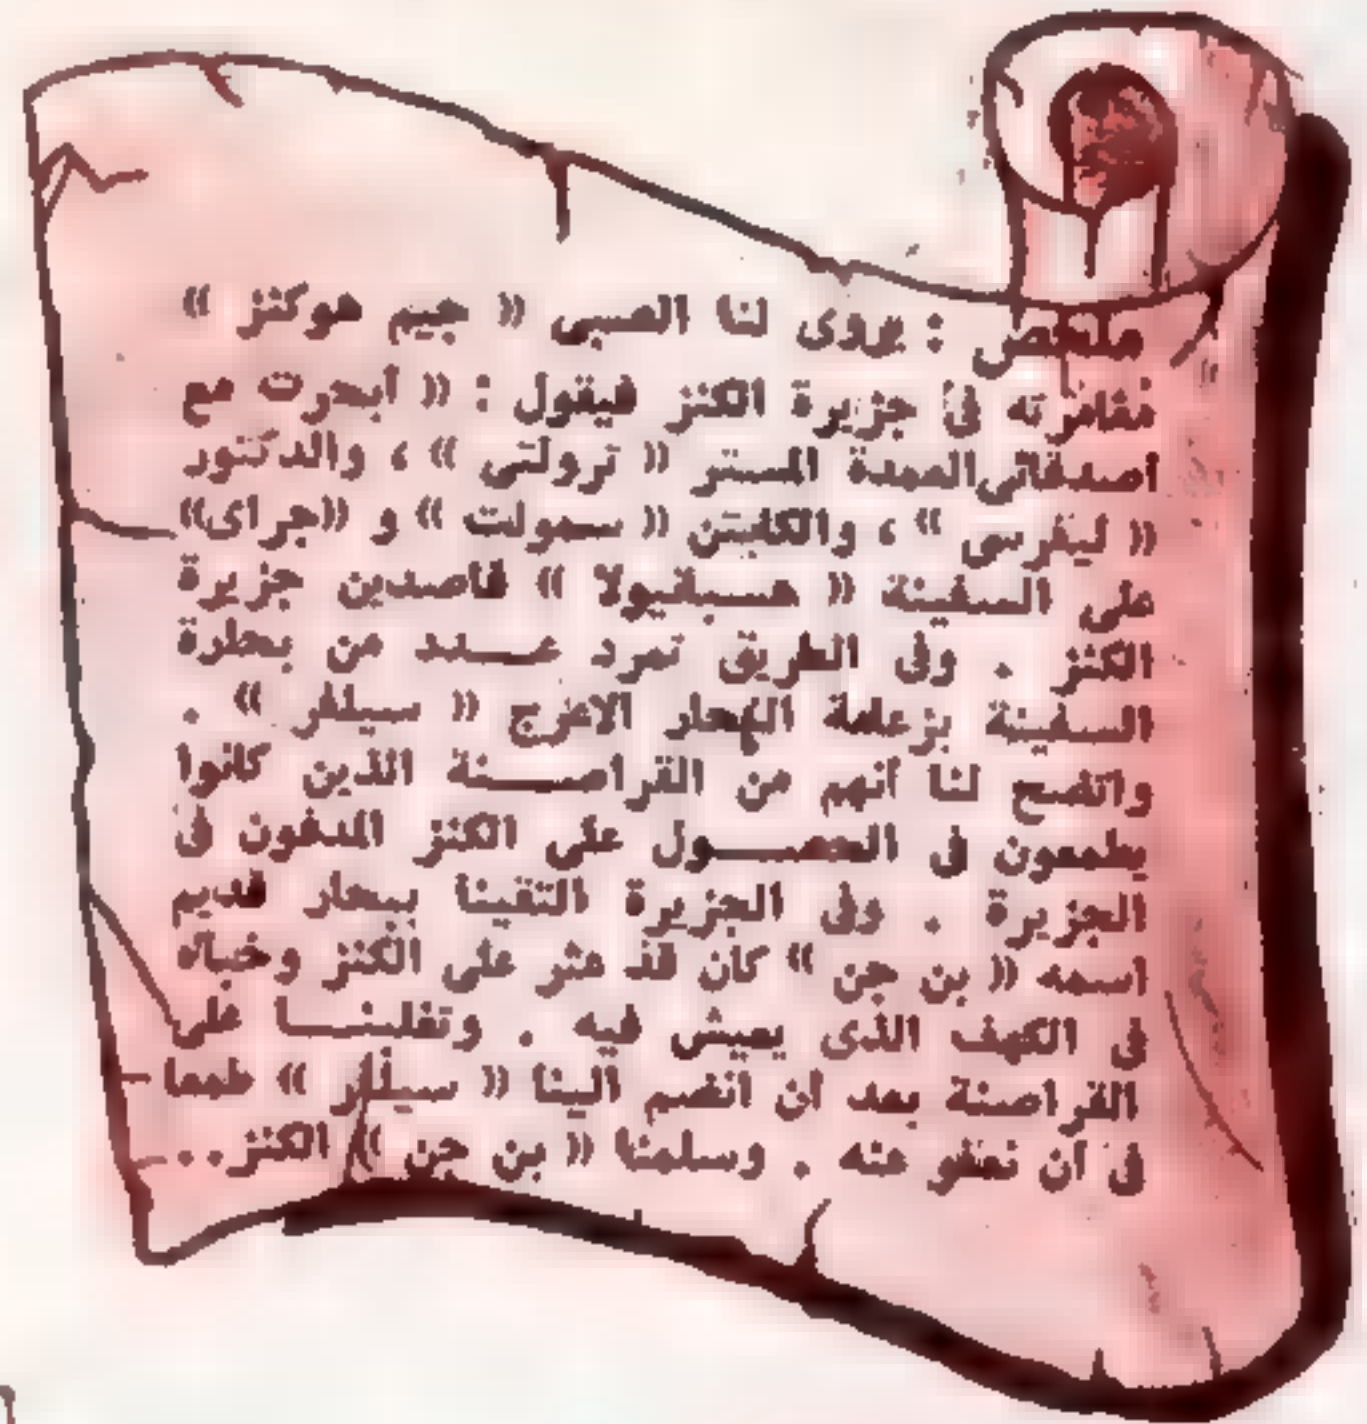 ملخص : يروى لنا الصبى « جيم هوكنز »
مغامرته فى جزيرة الكنز فيقول : « أبحرت مع
أصدقائى العمدة المستر « ترولنى » ، والدكتور
« ليفرسى » ، والكابتن « سمولت » و «جراى»
على السفينة « هسبانيولا » قاصدين جزيرة
الكنز . وفى الطريق تمرد عدد من بحارة
السفينة بزعامة البحار الاعرج « سيلفر » .
واتضح لنا أنهم من القراصنة الذين كانوا
يطمعون فى الحصول على الكنز المدفون فى
الجزيرة . وفى الجزيرة التقينا ببحار قديم
اسمه « بن جن » كان قد عثر على الكنز وخبأه
فى الكهف الذى يعيش فيه . وتغلبنا على
القراصنة بعد أن انضم الينا « سيلفر » طمعا
فى أن نعفو عنه . وسلمنا « بن جن » الكنز..